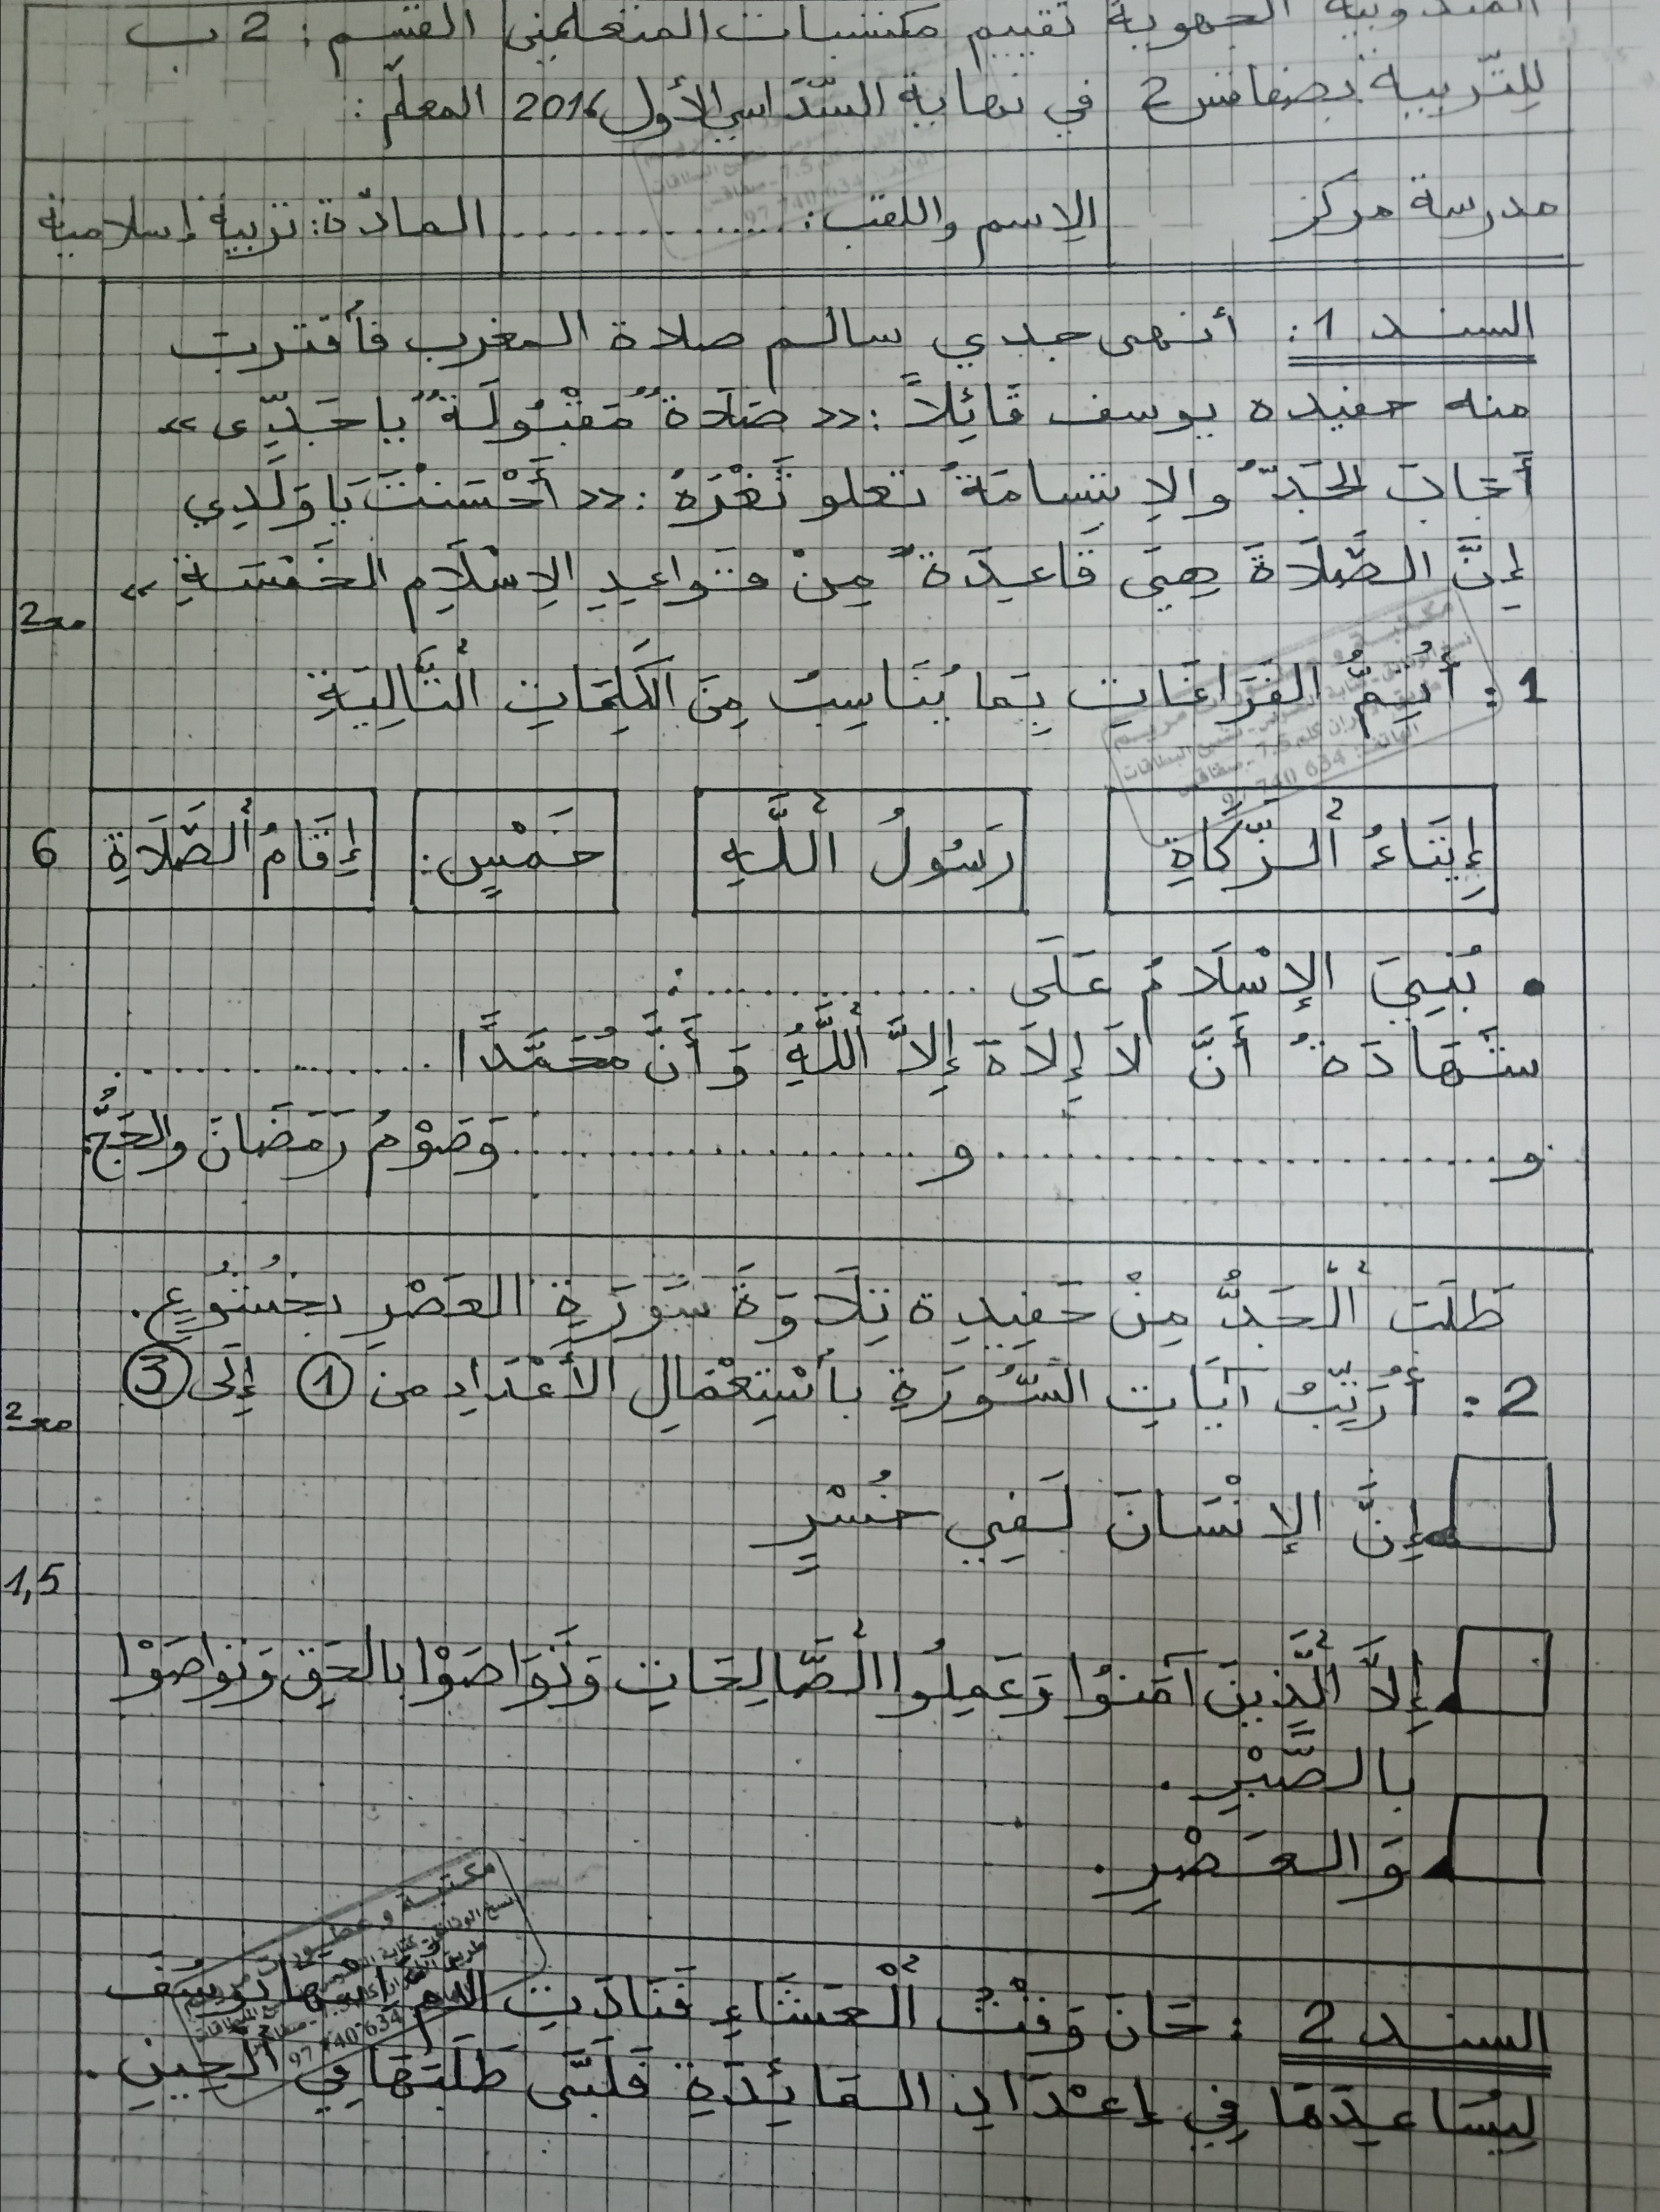 المندوبية الجهوية تقييم مكتسبات المتعلمين القسم: 2 ب
للتّربية بصفاقس 2 في نهاية السّداسي الأول 2016 المعلّم:
مدرسة مركز الإسم واللقب: .............. المادّة: تربية إسلامية
السند 1: أنهى جدي سالم صلاة المغرب فأقترب
منه حفيده يوسف قَائِلاً: «صَلاَةٌ مَقْبُولَةٌ يا جَدِّي»
أَجَابَ الجَدُّ والإبتِسامَةُ تعلو ثَغْرَهُ: «أَحْسَنْتَ يَا وَلَدِي
إِنَّ الصَّلَاةَ هِيَ قَاعِدَةٌ مِنْ قَواعِدِ الإِسْلَامِ الخَمْسَةِ»
مع2
1: أُتِمُّ الفَرَاغَاتِ بِمَا يُنَاسِبُ مِنَ الكَلِمَاتِ التَّالِيَةِ
إِيتَاءُ الزَّكَاةِ رَسُولُ اللَّهِ خَمْسٍ: إِقَامُ الصَّلَاةِ
6
• بُنِيَ الإِسْلَامُ عَلَى ..............:
شَهَادَةُ أَنَّ لاَ إِلاَهَ إِلاَّ اللَّهُ وَأَنَّ مُحَمَّدًا ..............
و.................... و.................... وَصَوْمُ رَمَضَانَ والحَجُّ.
طَلَبَ الْجَدُّ مِنْ حَفِيدِهِ تِلَاوَةَ سُورَةِ العَصْرِ بِخُشُوعٍ.
2: أُرَتِّبُ آيَاتِ السُّورَةِ بِأسْتِعْمَالِ الأَعْدَادِ من 1 إِلَى 3
مع2
إِنَّ الإِنْسَانَ لَفِي خُسْرٍ
1,5
إِلاَّ الَّذِينَ آمَنُوا وَعَمِلُوا الصَّالِحَاتِ وَتَوَاصَوْا بالحَقِ وَتَواصَوْا
بالصَّبْرِ.
وَالعَصْرِ.
السند 2: حَانَ وَقْتُ الْعَشَاءِ فَنَادَتِ الأم ابنها يُوسُفَ
لِيُسَاعِدَهَا فِي إِعْدَادِ المَائِدَةِ فَلَبَّى طَلَبَهَا فِي الحِينِ.